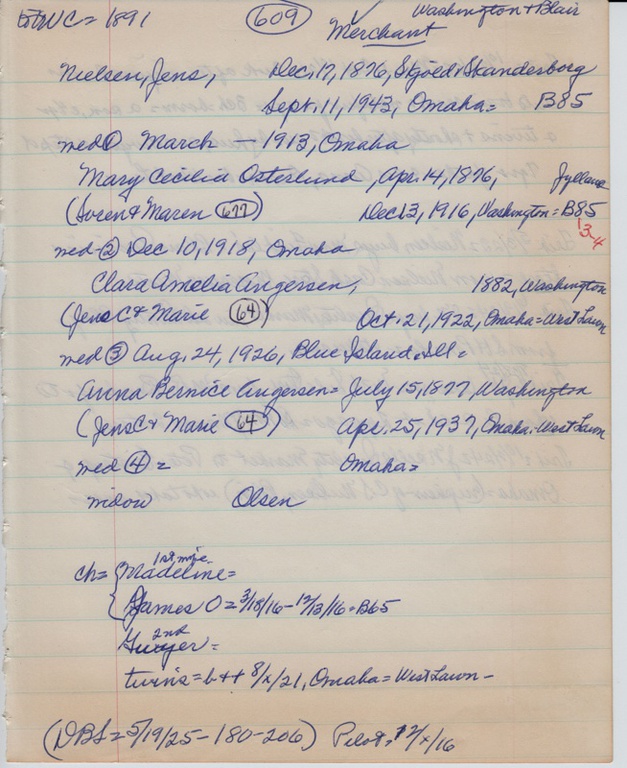 to WC = 1891 609 ✓ Washington + Blair
Merchant
Nielsen, Jens, Dec. 17, 1876, Skanderborg
Sept. 11, 1943, Omaha = B85
med ① March – 1913, Omaha
Mary Cecilia Osterlund, Apr. 14, 1876, Jylland
(Soren & Maren 677) Dec 13, 1916, Washington = B85
3-4
med-② Dec 10, 1918, Omaha
Clara Amelia Angersen, 1882, Washington
(Jens C & Marie 64) Oct. 21, 1922, Omaha = West Lawn
med ③ Aug. 24, 1926, Blue Island, Ill =
Anna Bernice Angersen = July 15, 1877, Washington
(Jens C & Marie 64) Apr. 25, 1937, Omaha = West Lawn
med ④ = Omaha =
widow Olsen
ch = { 1st wife
Madeline =
James O = 3/18/16 – 12/13/16 = B65
2nd
=
twins = b + + 8/x/21, Omaha = West Lawn –
(DBL = 5/19/25 – 180 – 206) Pilot = 12/x/16